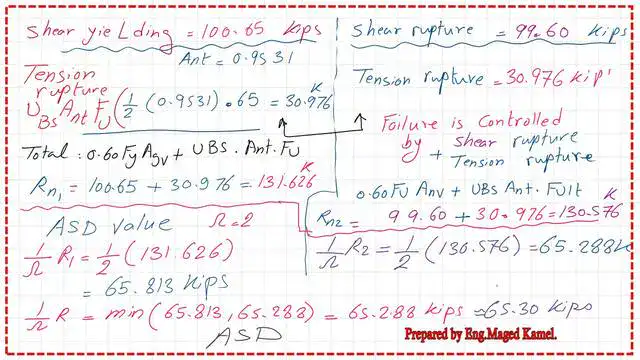 Shear yieLding = 100.65 kips
Ant = 0.9531
Tension
rupture
UBs Ant FU (1/2 (0.9531) • 65 = 30.976 K
Total : 0.60 Fy Agv + UBS. Ant. FU
Rn1 = 100.65 + 30.976 = 131.626 K
ASD value Ω=2
1/Ω R1 = 1/2 (131.626)
= 65.813 kips
1/Ω R = min (65.813, 65.288) = 65.288 kips ≈65.30 kips
ASD
Shear rupture = 99.60 kips
Tension rupture = 30.976 kip'
Failure is Controlled
by shear rupture
+ Tension rupture
0.60 FU Anv + UBS Ant. FUlt
Rn2 = 99.60 + 30.976 = 130.576 K
1/Ω R2 = 1/2 (130.576) = 65.288K
Prepared by Eng.Maged Kamel.